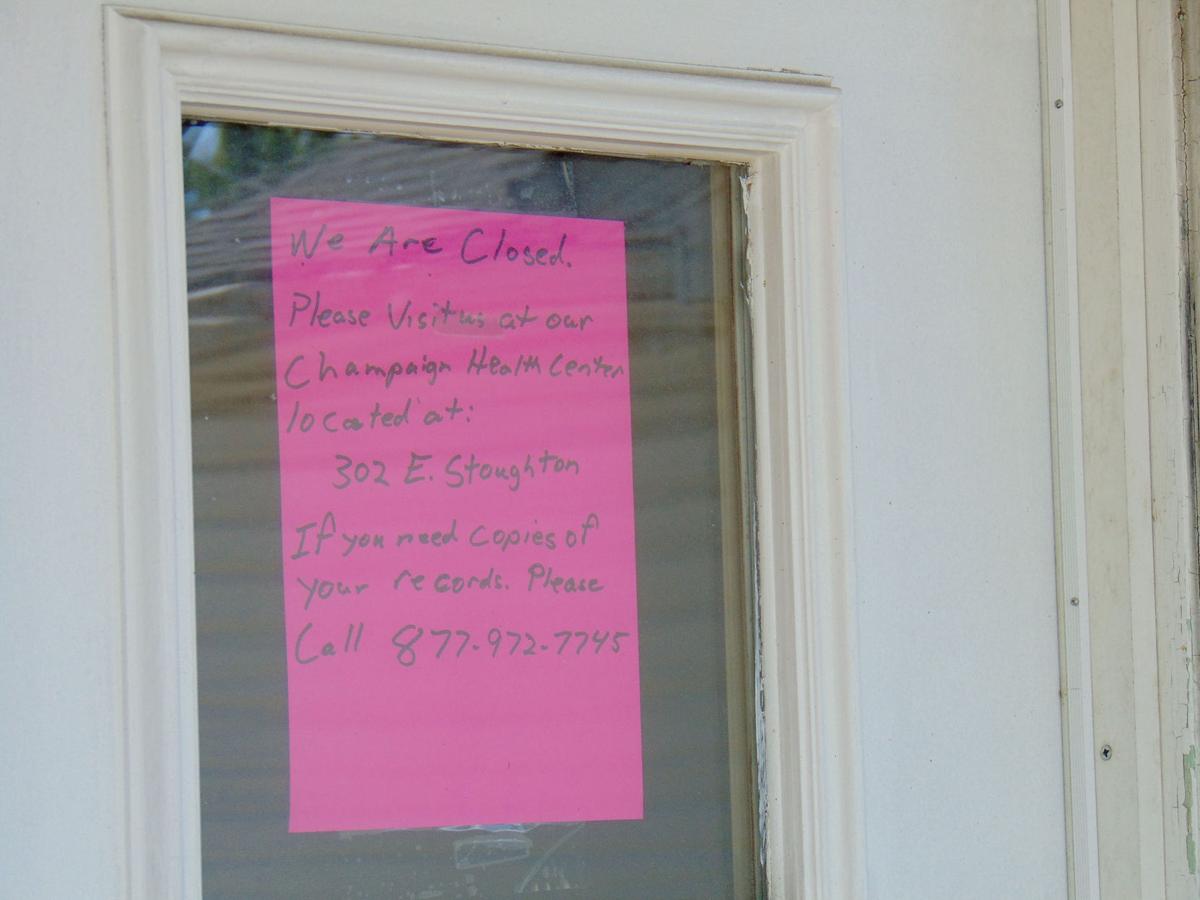 We Are Closed.
Please Visit us at our
Champaign Health Center
located at:
302 E. Stoughton
If you need copies of
your records. Please
Call 877-972-7745